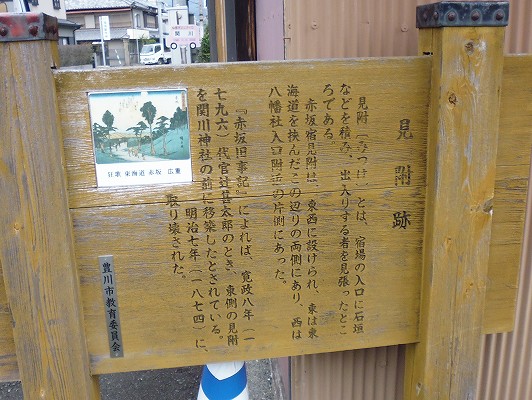 見附跡
見附（みつけ）とは、宿場の入口に石垣
などを積み、出入りする者を見張ったとこ
ろである。
赤坂宿見附は、東西に設けられ、東は東
海道を挟んだこの辺りの両側にあり、西は
八幡社入口附近の片側にあった。
『赤坂旧事記』によれば、寛政八年（一
七九六）代官辻甚太郎のとき、東側の見附
を関川神社の前に移築したとされている。
明治七年（一八七四）に、
取り壊された。
狂歌 東海道 赤坂 広重
豊川市教育委員会
関川